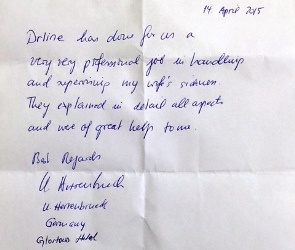 14 April 2015
Drline has done for us a
very very professional job in handling
and supervising my wife's sickness.
They explained in detail all aspects
and were of great help to me.
Best Regards
U Herrenbrueck
U. Herrenbrueck
Germany
Glorious Hotel